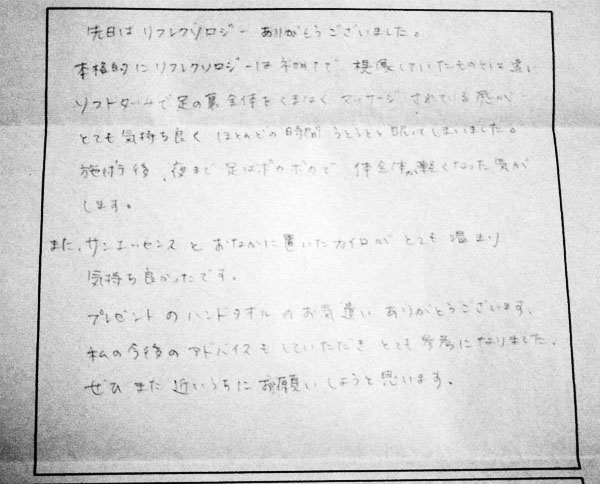 先日は リフレクソロジー ありがとうございました。
本格的にリフレクソロジーは初めてで 想像していたものとは違い
ソフトタッチで足の裏全体をくまなく マッサージ されている感が
とても気持ち良く ほとんどの時間 うとうとと眠ってしまいました。
施術後、夜まで 足はポカポカで 体全体が軽くなった気が
します。
また、サンエッセンス と おなかに置いたカイロが とても 温まり
気持ち良かったです。
プレゼント の ハンドタオル のお気遣い ありがとうございます、
私の今後の アドバイスも していただき とても 参考になりました、
ぜひ また 近いうちに お願い しようと思います。